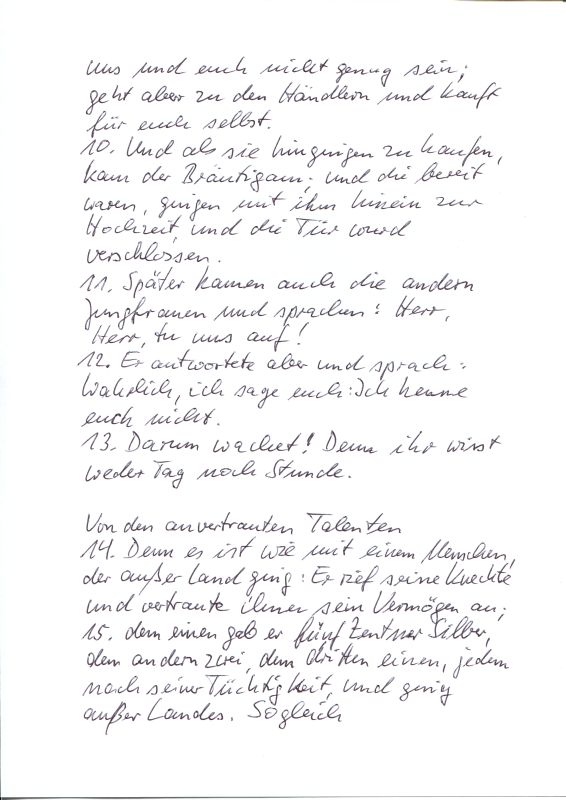 uns und euch nicht genug sein;
geht aber zu den Händlern und kauft
für euch selbst.
10. Und als sie hingingen zu kaufen,
kam der Bräutigam; und die bereit
waren, gingen mit ihm hinein zur
Hochzeit, und die Tür wurd
verschlossen.
11. Später kamen auch die andern
Jungfrauen und sprachen: Herr,
Herr, tu uns auf!
12. Er antwortete aber und sprach:
Wahrlich, ich sage euch: Ich kenne
euch nicht.
13. Darum wachet! Denn ihr wisst
weder Tag noch Stunde.
Von den anvertrauten Talenten
14. Denn es ist wie mit einem Menschen,
der außer Land ging: Er rief seine Knechte
und vertraute ihnen sein Vermögen an;
15. dem einen gab er fünf Zentner Silber,
dem andern zwei, dem dritten einen, jedem
nach seiner Tüchtigkeit, und ging
außer Landes. Sogleich